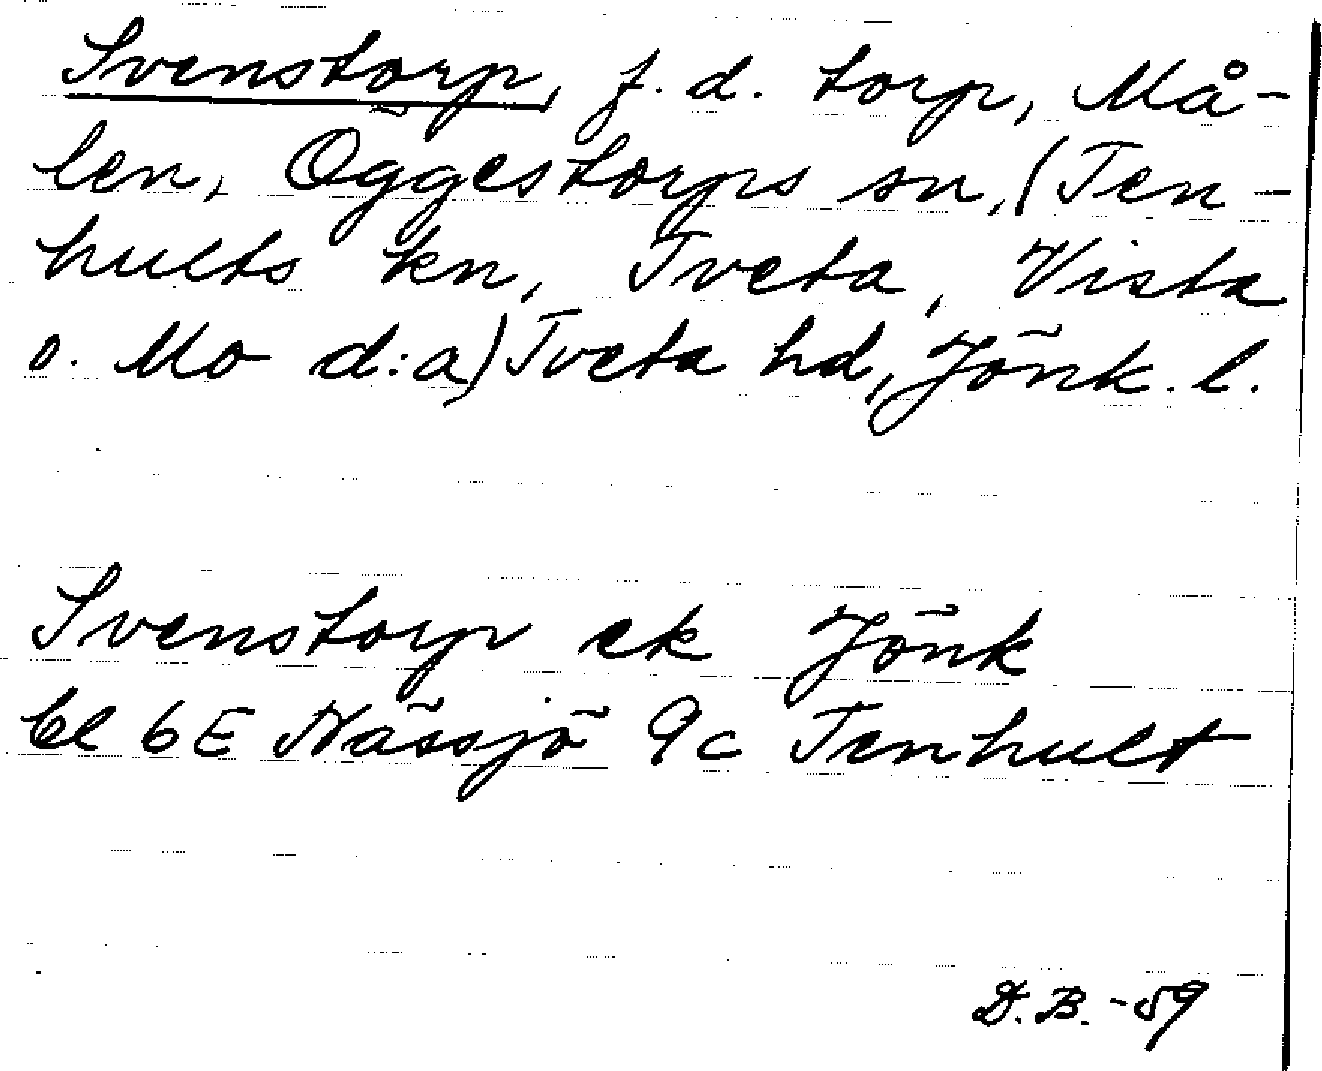 Svenstorp, f.d. torp, Må-
len, Öggestorps sn, (Ten-
hults kn, Tveta, Vista
o. Mo d:a) Tveta hd, Jönk. l.
Svenstorp ek Jönk
bl 6E Nässjö 9c Tenhult
D.B. -59